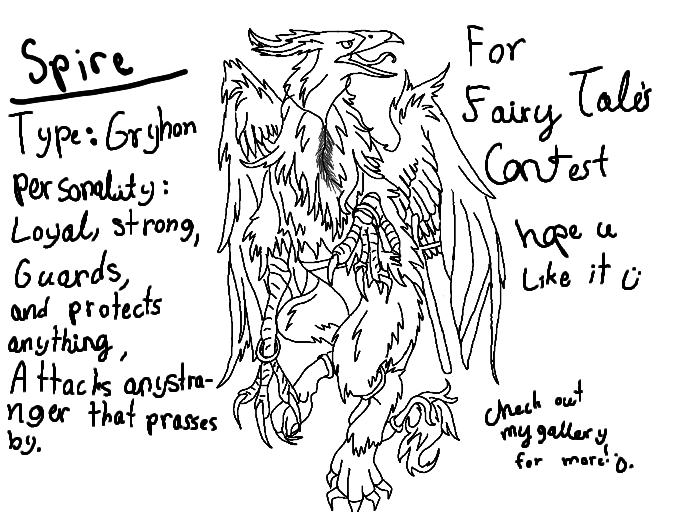 Spire
Type: Gryhon
Personality:
Loyal, strong,
Guards,
and protects
anything,
Attacks anystra-
nger that prasses
by.
For
Fairy Tales
Contest
hope u
Like it ü
check out
my gallery
for more! :D.